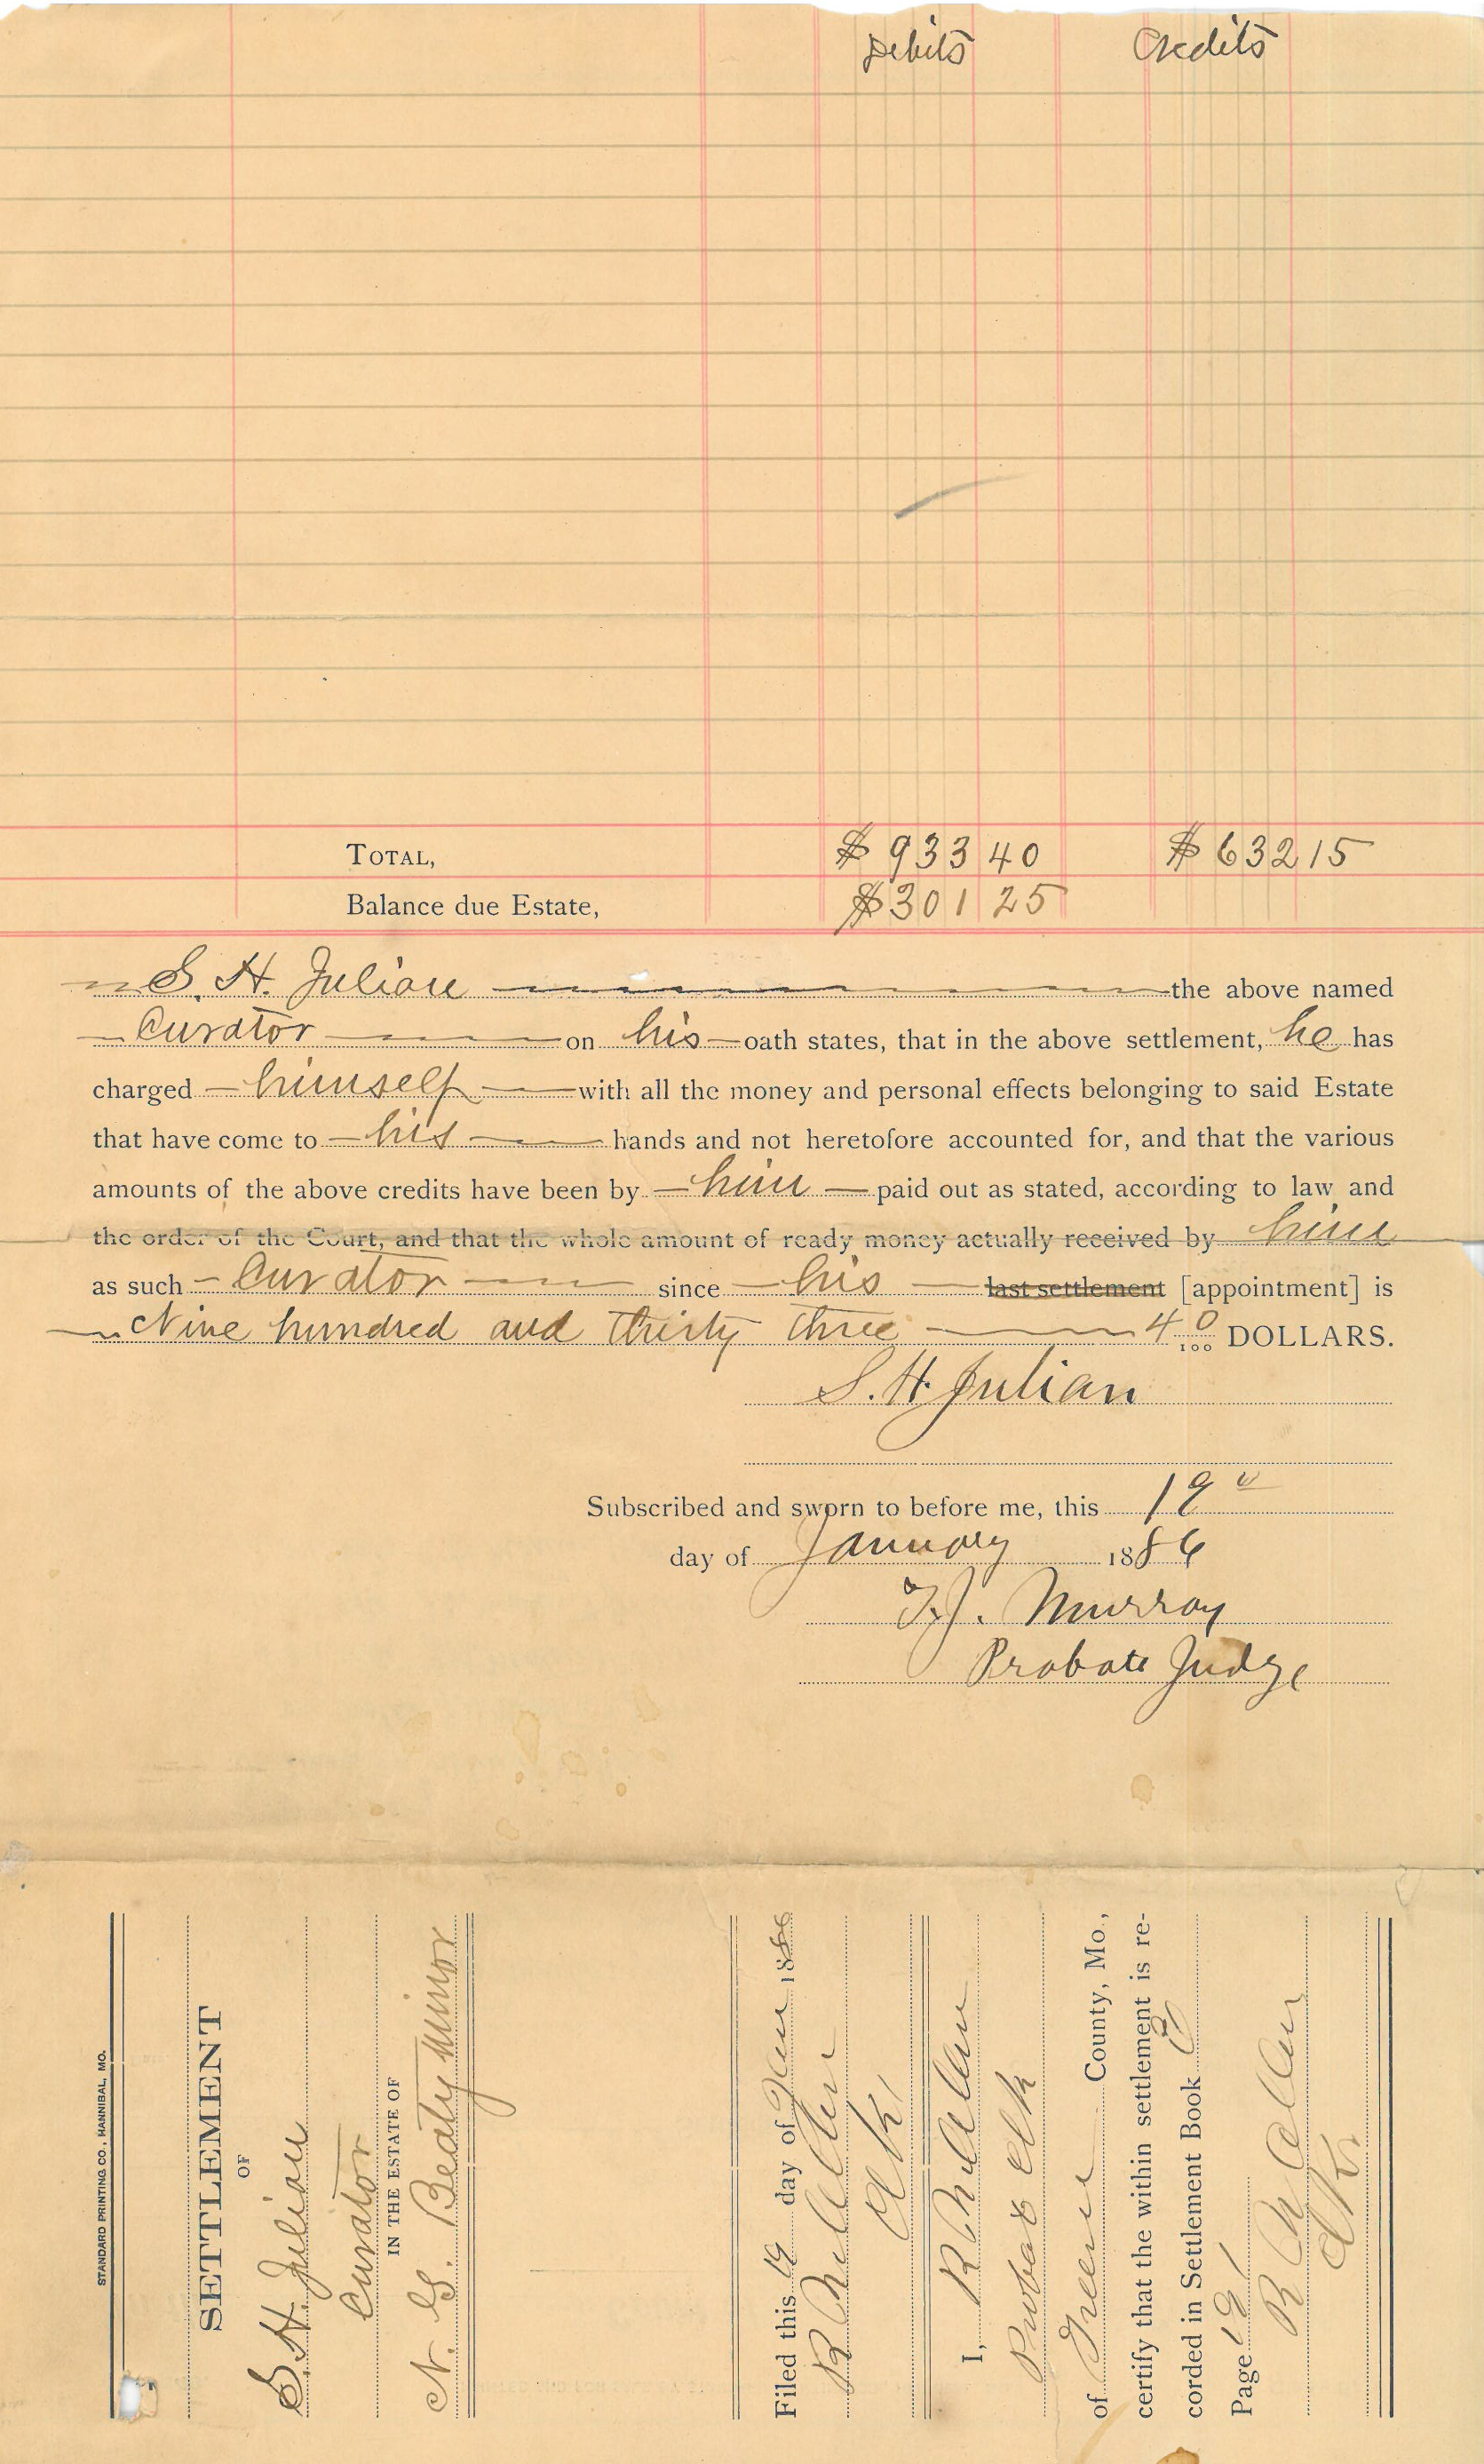 Debits Credits
TOTAL, $ 933 40 $ 632 15
Balance due Estate, $ 301 25
S. H. Julian the above named
Curator on his oath states, that in the above settlement, he has
charged himself with all the money and personal effects belonging to said Estate
that have come to his hands and not heretofore accounted for, and that the various
amounts of the above credits have been by him paid out as stated, according to law and
the order of the Court, and that the whole amount of ready money actually received by him
as such Curator since his last settlement [appointment] is
Nine hundred and thirty three 40/100 DOLLARS.
S. H. Julian
Subscribed and sworn to before me, this 19
day of January 1886
T. J. Murray
Probate Judge
STANDARD PRINTING CO., HANNIBAL, MO.
SETTLEMENT
OF
S. H. Julian
Curator
IN THE ESTATE OF
N. G. Beaty minor
Filed this 19 day of Jan 1886
Clk
I,
Probate Clk
of Greene County, Mo.,
certify that the within settlement is re-
corded in Settlement Book
Page